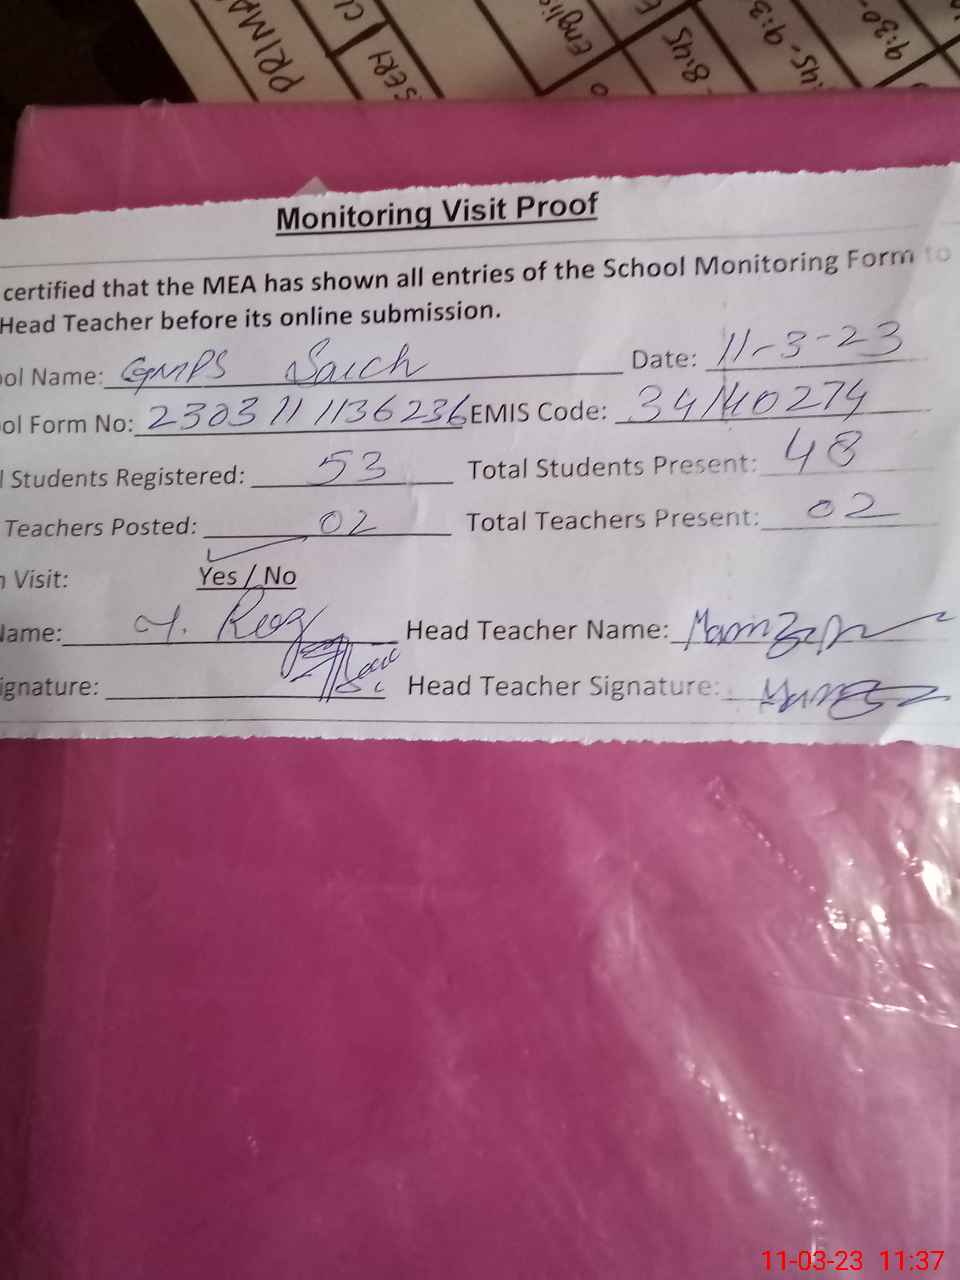 PRIMA
SERY
Englis
8:45
:45-9:3
9:30-
Monitoring Visit Proof
certified that the MEA has shown all entries of the School Monitoring Form to
Head Teacher before its online submission.
ool Name: GMPS Saich Date: 11-3-23
ol Form No: 230311 1136236 EMIS Code: 34110274
l Students Registered: 53 Total Students Present: 48
Teachers Posted: 02 Total Teachers Present: 02
n Visit: Yes / No
Name: Head Teacher Name:
ignature: Head Teacher Signature:
11-03-23 11:37